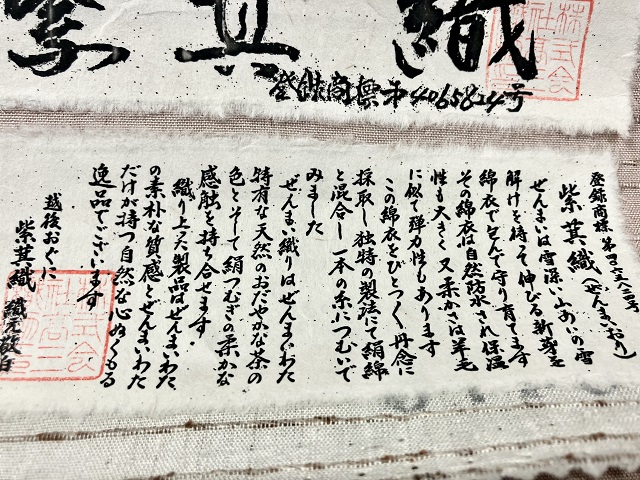 紫萁織
登録商標第4065824号
登録商標 第四〇六五八二四号
紫萁織(ぜんまいおり)
ぜんまいは雪深い山あいの雪
解けを待って伸びる新芽を
綿衣で包んで守り育てます
その綿衣は自然防水され保温
性も大きく 又 柔かさは羊毛
に似て弾力性もあります
この綿衣をひとつ〱丹念に
採取し独特の製法にて絹綿
と混合し一本の糸につむいで
みました
ぜんまい織りはぜんまいわた
特有な天然のおだやかな茶の
色とそして絹つむぎの柔かな
感触を持ち合せます.
織り上った製品はぜんまいわた
の素朴な質感とぜんまいわた
だけが持つ自然な心ぬくもる
逸品でございます
越後おぐに
紫萁織 織元敬白
株式会
社